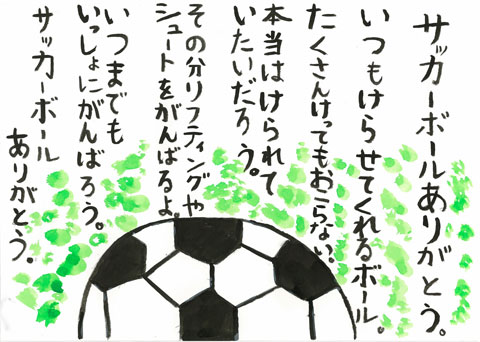 サッカーボールありがとう。
いつもけらせてくれるボール。
たくさんけってもおこらない。
本当はけられて
いたいだろう。
その分リフティングや
シュートをがんばるよ。
いつまでも
いっしょにがんばろう。
サッカーボール
ありがとう。